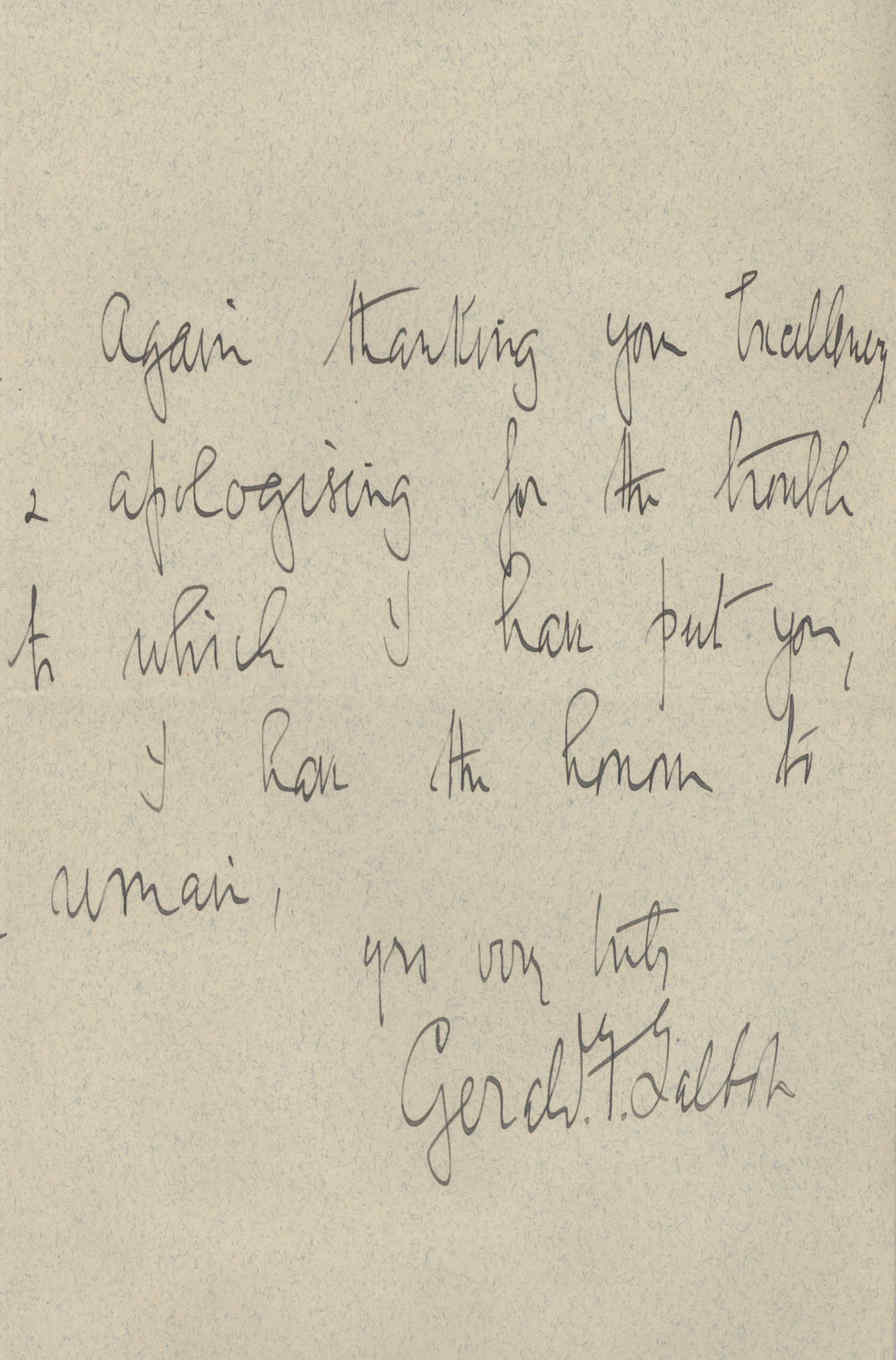 Again thanking your Excellency
& apologising for the trouble
to which I have put you,
I have the honour to
remain,
yrs very truly
Gerald. F. Talbot